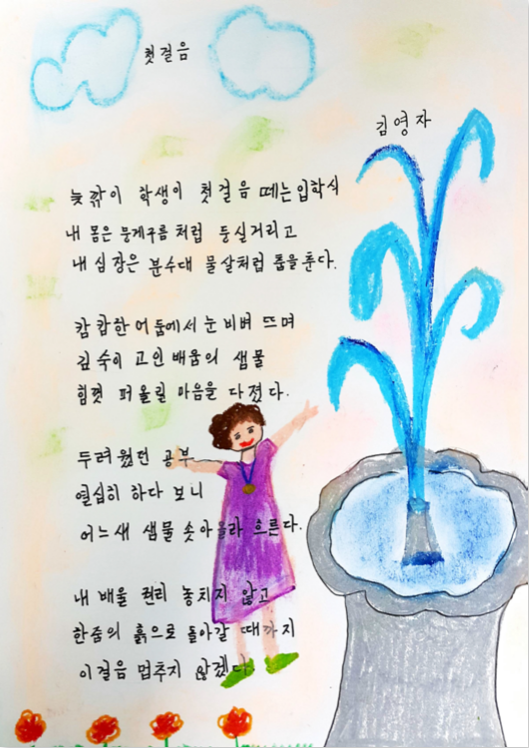 첫걸음
김영자
늦깎이 학생이 첫걸음 떼는 입학식
내 몸은 뭉게구름처럼 둥실거리고
내 심장은 분수대 물살처럼 춤을 춘다.
캄캄한 어둠에서 눈 비벼 뜨며
깊숙이 고인 배움의 샘물
힘껏 퍼 올릴 마음을 다졌다.
두려웠던 공부
열심히 하다 보니
어느새 샘물 솟아올라 흐른다.
내 배울 권리 놓치지 않고
한줌의 흙으로 돌아갈 때까지
이 걸음 멈추지 않겠다